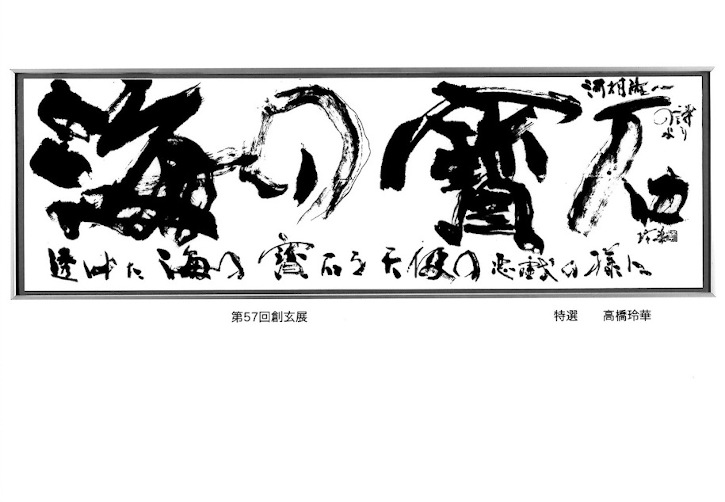 海の寶石
河村隆一
詩
のより
透けた海の寶石を天使の悪戯の様に
玲華
第57回創玄展
特選 高橋玲華